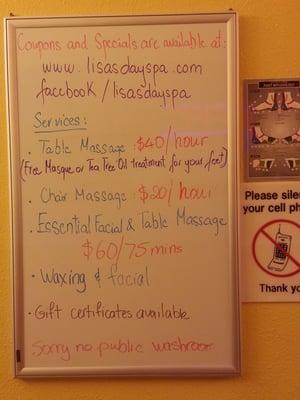 Coupons and Specials are available at:
www.lisasdayspa.com
facebook/lisasdayspa
Services:
• Table Massage: $40/hour
(Free Masque or Tea Tree Oil treatment for your feet)
• Chair Massage: $20/hour
• Essential Facial & Table Massage
$60/75 mins
• Waxing & facial
• Gift certificates available
Sorry no public washroom
Please
your cell
Thank